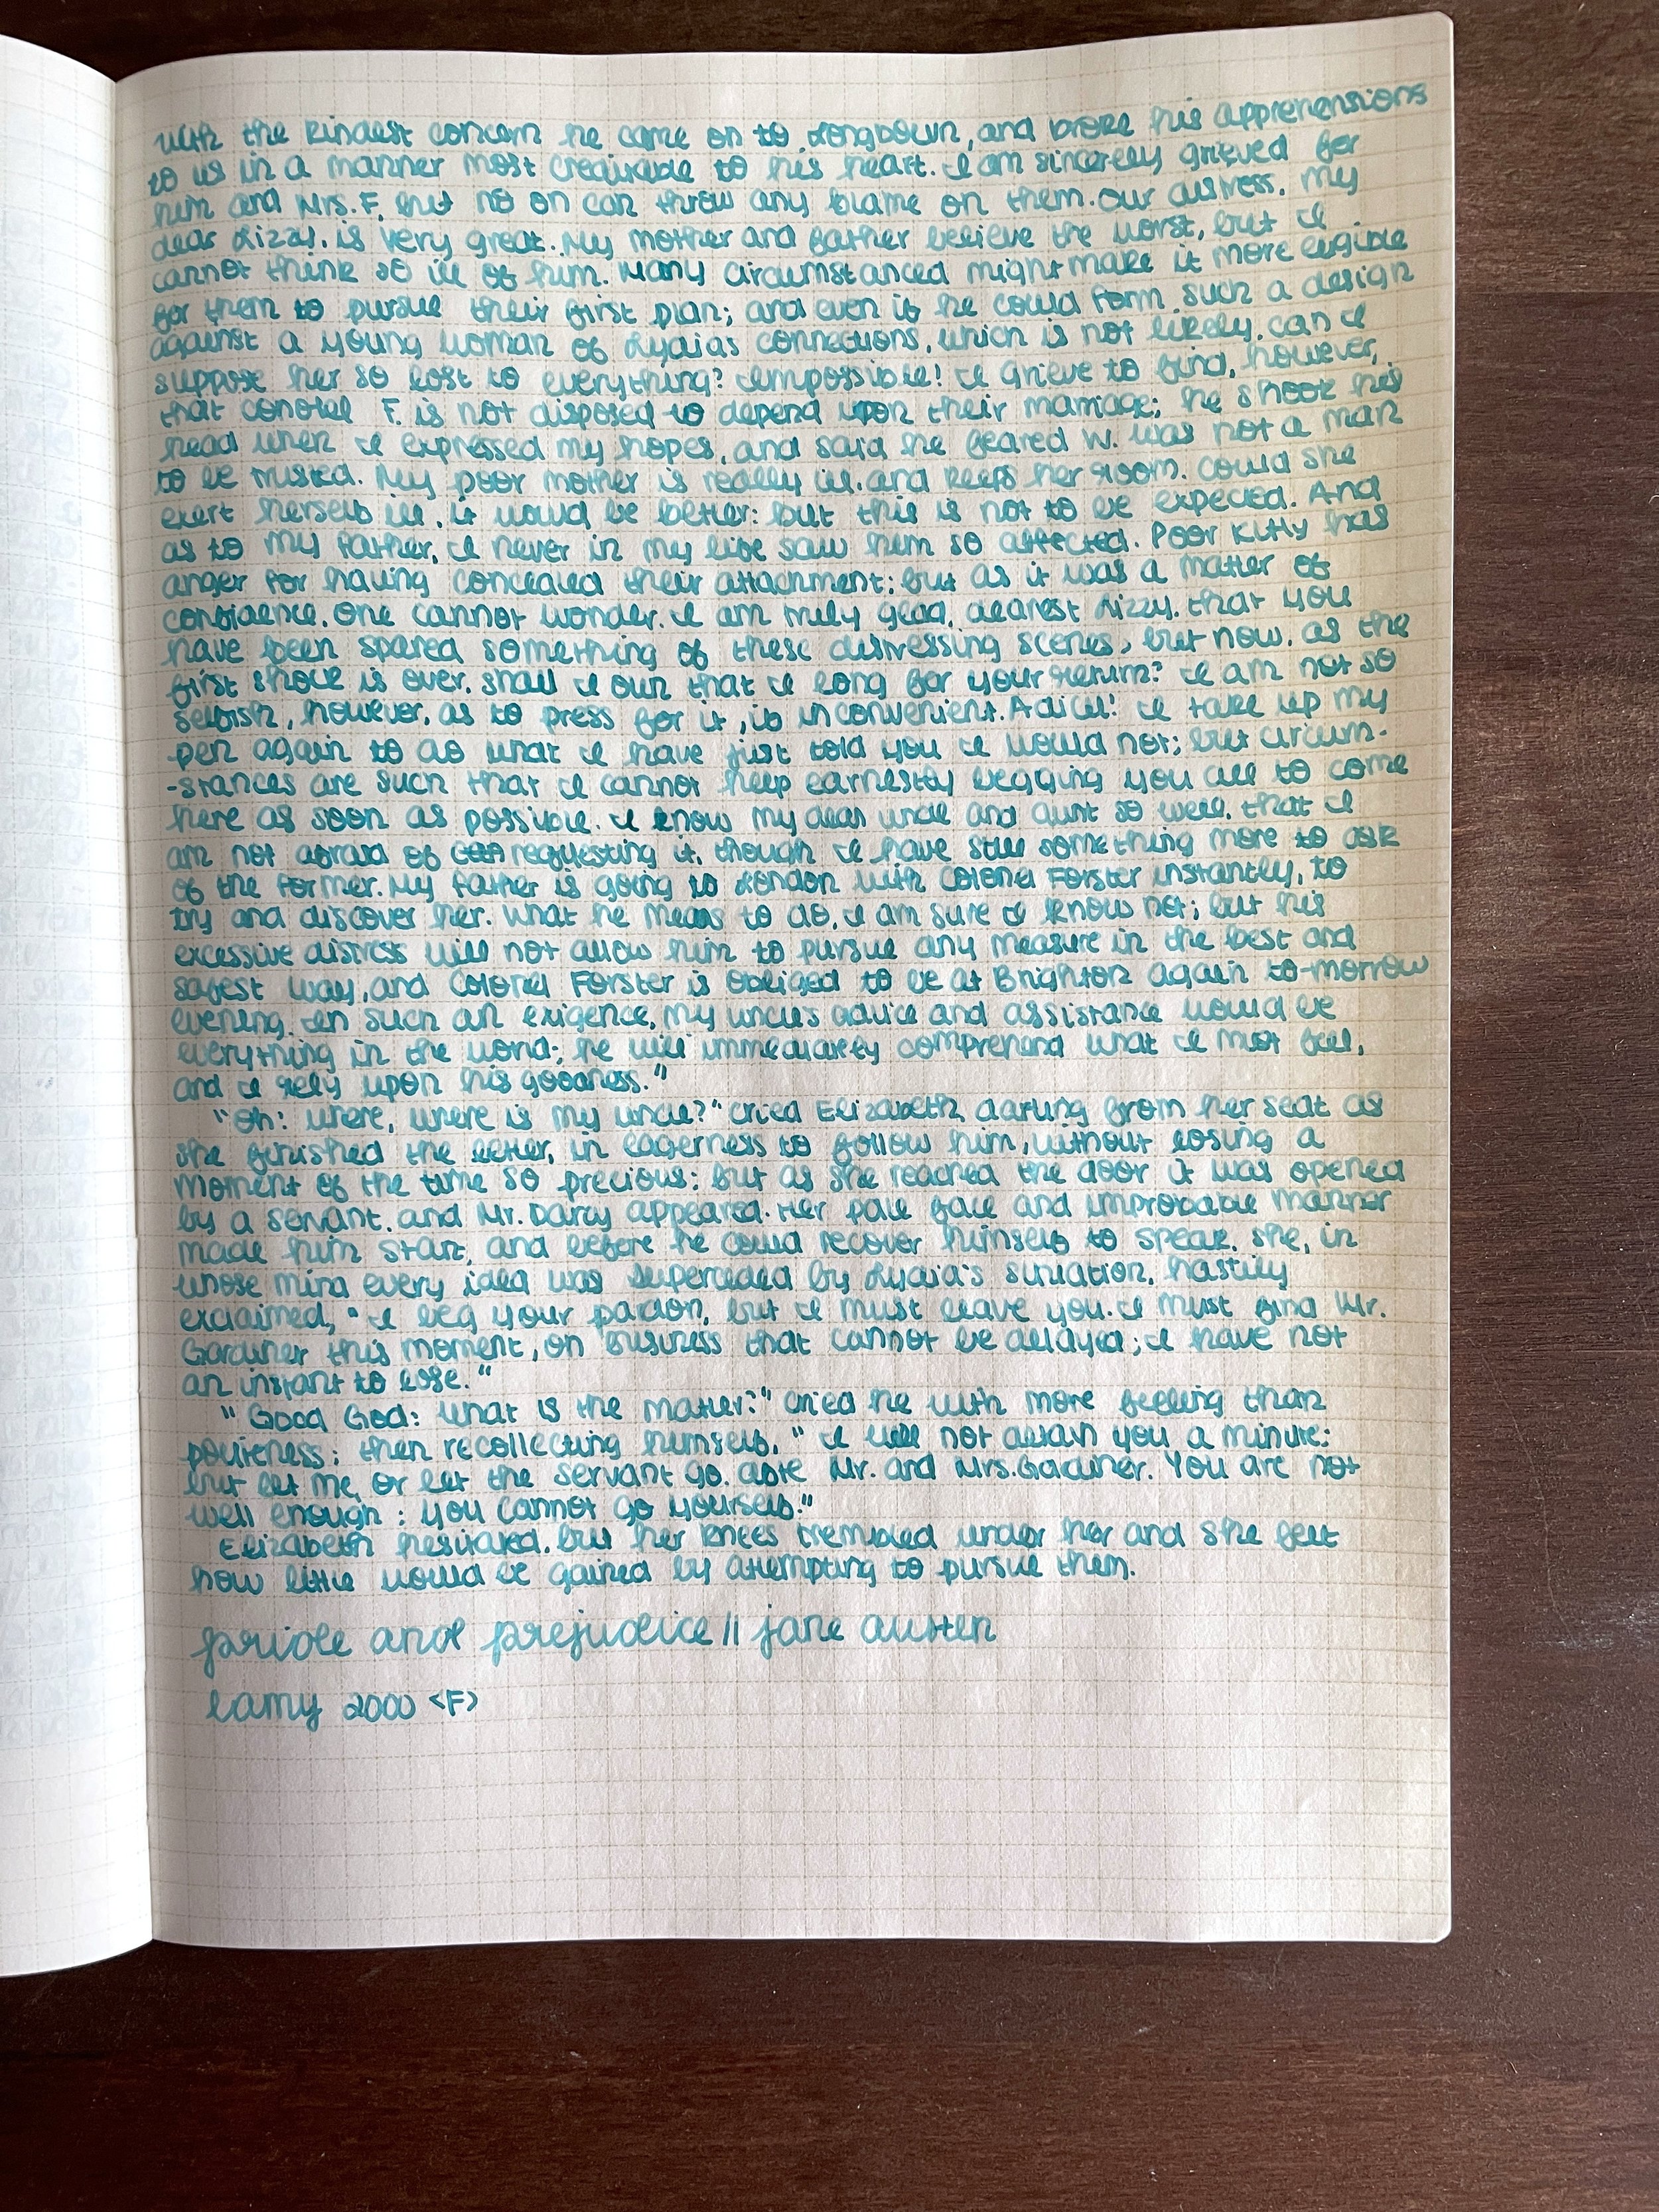 with the kindest concern he came on to Longbown, and broke his apprehensions
to us in a manner most creditable to his heart. I am sincerely grieved for
him and Mrs. F, but no on can throw any blame on them. Our distress, my
dear Lizzy, is very great. My mother and father believe the worst, but I
cannot think so ill of him. Many circumstanced might make it more eligible
for them to pursue their first plan; and even if he could form such a design
against a young woman of Lydias connections, which is not likely, can I
suppose her so lost to everything? Impossible! I grieve to find, however,
that conolel F. is not disposed to depend upon their marriage; he shook his
head when I expressed my hopes, and said he feared W. was not a man
to be trusted. My poor mother is really ill, and keeps her room. Could she
exert herself ill, it would be better: but this is not to be expected. And
as to my father, I never in my life saw him so affected. Poor Kitty has
anger for having concealed their attachment; but as it was a matter of
confidence, one cannot wonder. I am truly glad, dearest Lizzy, that you
have been spared something of these distressing scenes, but now, as the
first shock is over, shall I own that I long for your return? I am not so
selfish, however, as to press for it, if inconvenient. Adieu! I take up my
pen again to do what I have just told you I would not; but circum-
-stances are such that I cannot help earnestly begging you all to come
here as soon as possible. I know my dear uncle and aunt so well, that I
am not afraid of requesting it, though I have still something more to ask
of the former. My father is going to London with Colonel Forster instantly, to
try and discover her. What he means to do, I am sure I know not; but his
excessive distress will not allow him to pursue any measure in the best and
safest way, and Colonel Forster is obliged to be at Brighton again to-morrow
evening. In such an exigence, my uncle's advice and assistance would be
everything in the world; he will immediately comprehend what I must feel,
and I rely upon his goodness."
"Oh! where, where is my uncle?" cried Elizabeth, darting from her seat as
she finished the letter, in eagerness to follow him, without losing a
moment of the time so precious; but as she reached the door it was opened
by a servant, and Mr. Darcy appeared. Her pale face and improbable manner
made him start, and before he could recover himself to speak, she, in
whose mind every idea was superceded by Lydia's situation, hastily
exclaimed, "I beg your pardon, but I must leave you. I must find Mr.
Gardiner this moment, on business that cannot be delayed; I have not
an instant to lose."
"Good God! What is the matter?" cried he with more feeling than
politeness; then recollecting himself, "I will not detain you a minute;
but let me, or let the servant go, after Mr. and Mrs. Gardiner. You are not
well enough; you cannot go yourself."
Elizabeth hesitated, but her knees trembled under her and she felt
how little would be gained by attempting to pursue them.
pride and prejudice // jane austen
lamy 2000 <F>